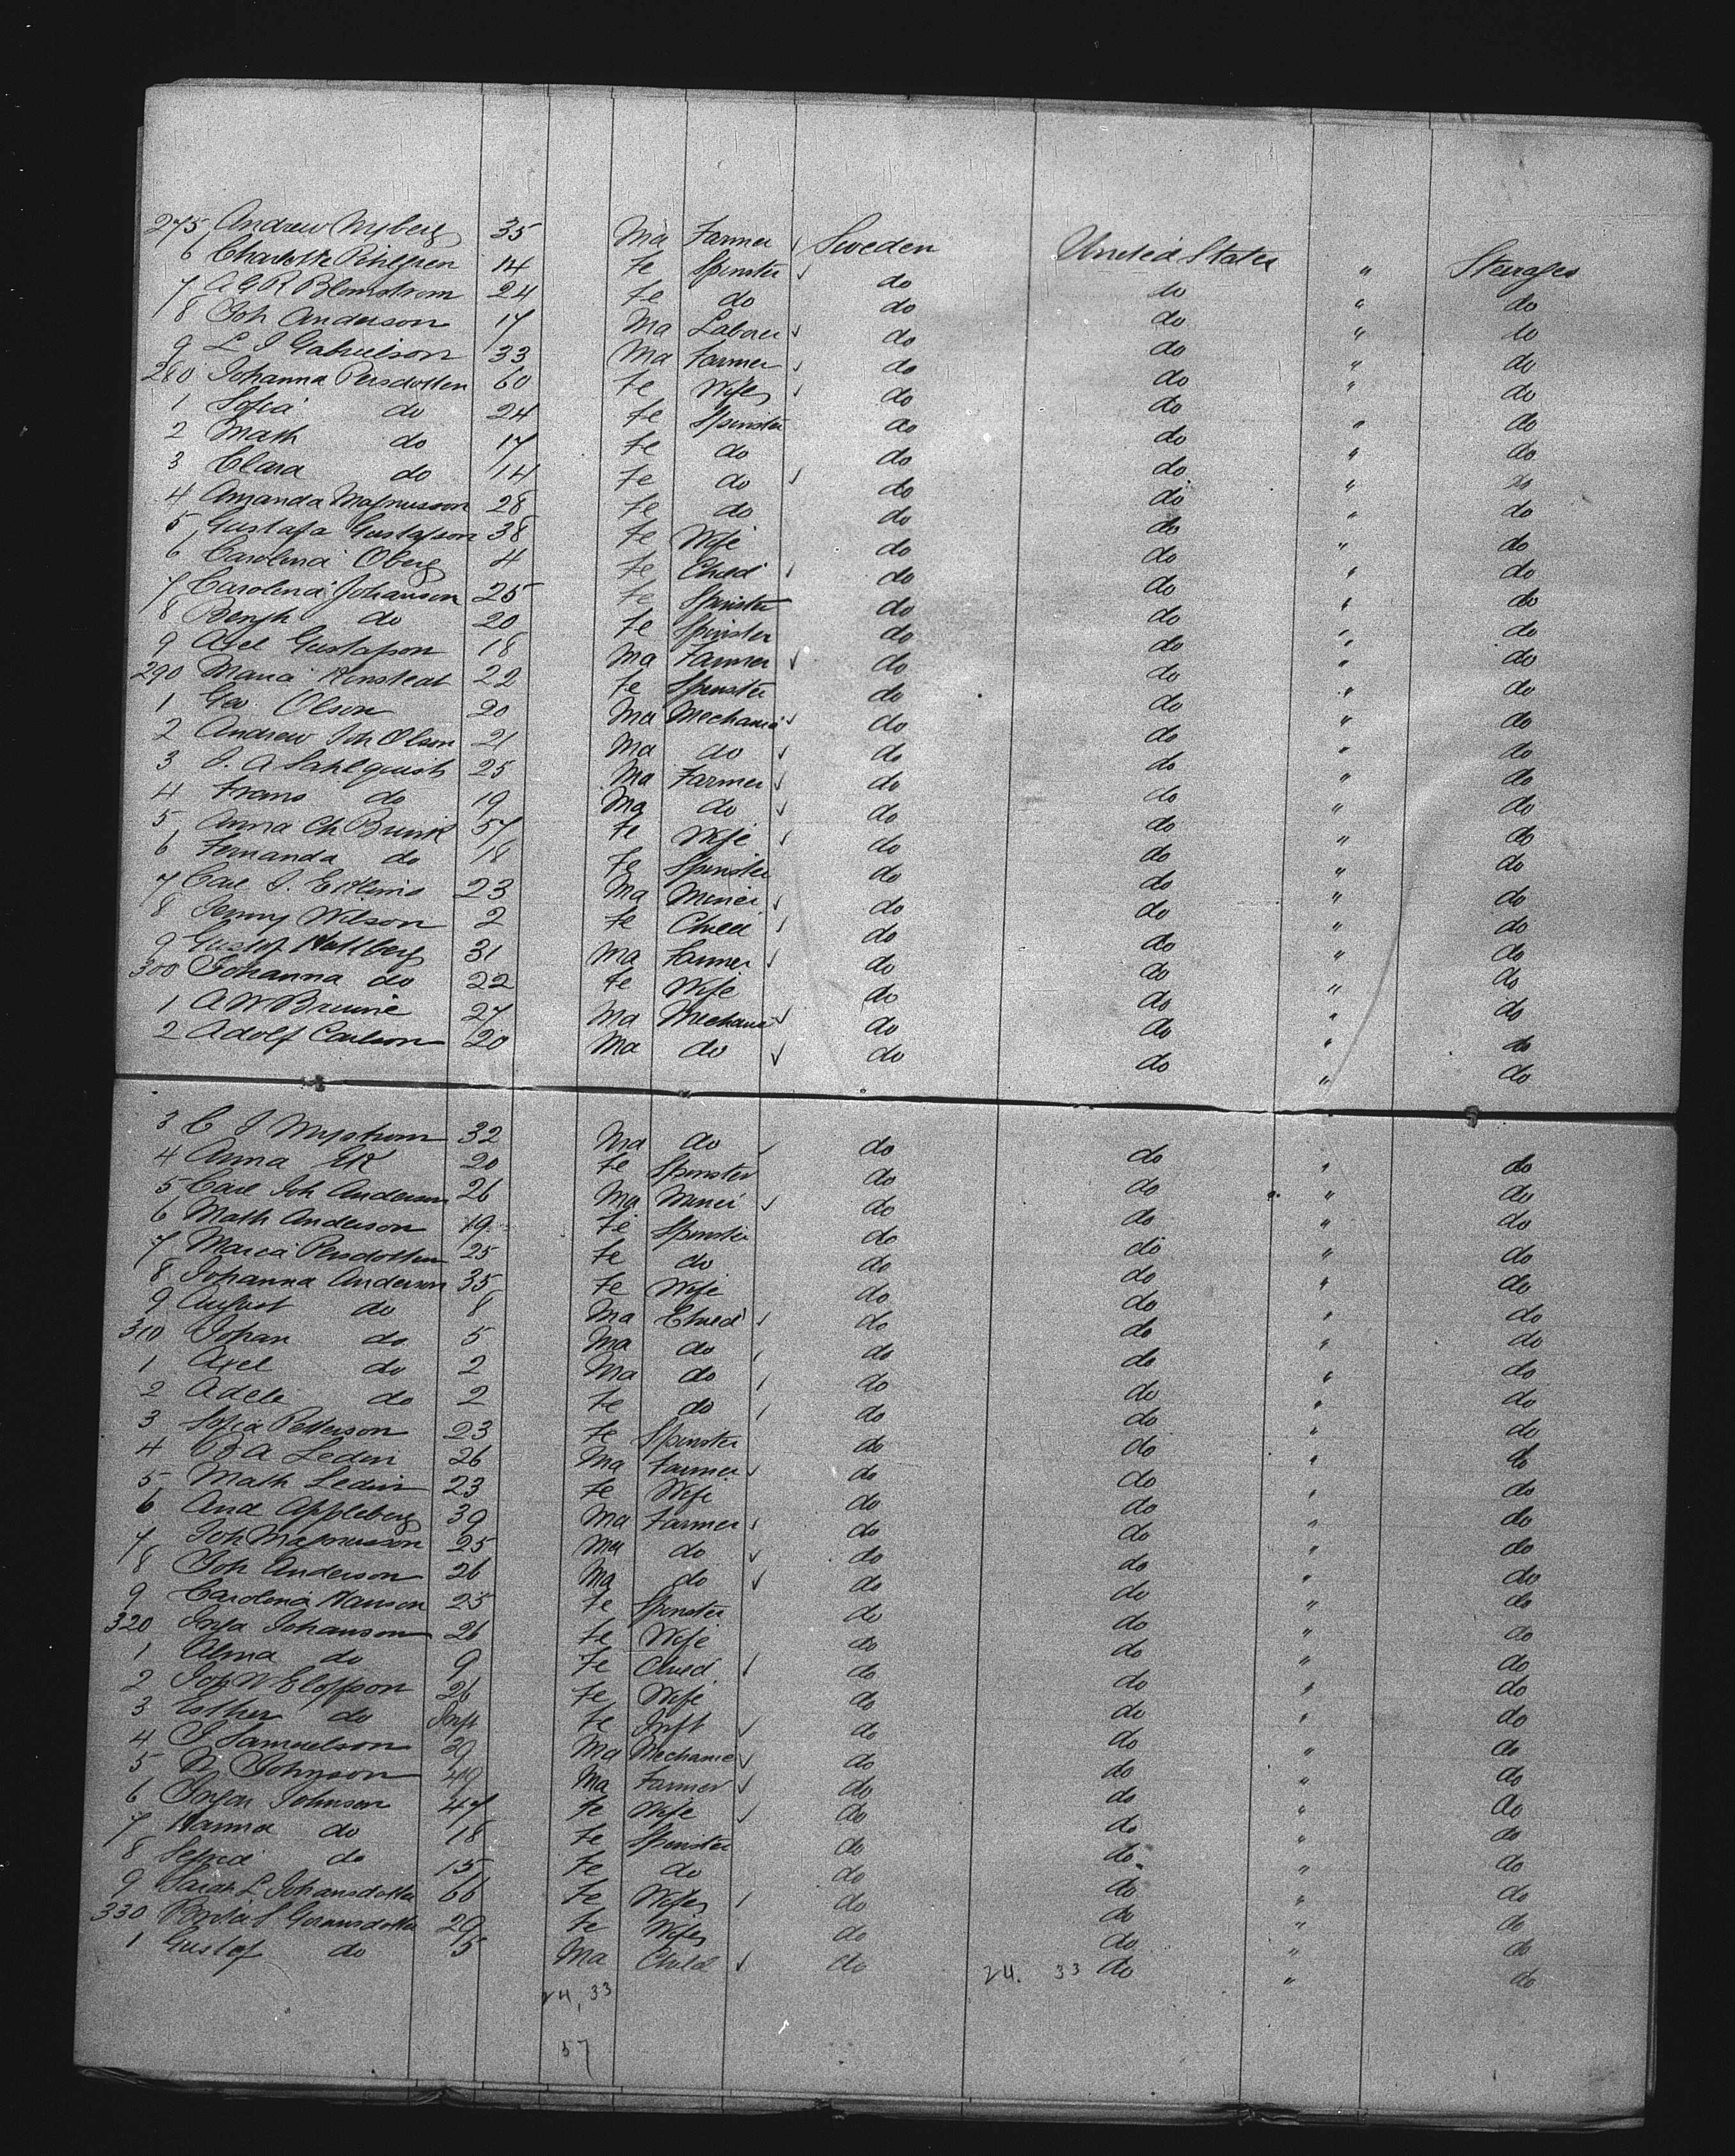 275 Andrew Nyberg 35 Ma Farmer ✓ Sweden United States " Steerages
6 Charlotte Pihlgren 14 Fe Spinster ✓ do do " do
7 A G R Blomstrom 24 Fe do do do " do
8 Joh Anderson 17 Ma Laborer ✓ do do " do
9 L J Gabrielson 33 Ma Farmer ✓ do do " do
280 Johanna Persdotter 60 Fe Wife ✓ do do " do
1 Sofia do 24 Fe Spinster do do " do
2 Math do 17 Fe do do do " do
3 Clara do 14 Fe do ✓ do do " do
4 Amanda Magnusson 28 Fe do do do " do
5 Gustafa Gustafson 38 Fe Wife do do " do
6 Carolina Oberg 4 Fe Child ✓ do do " do
7 Carolina Johanson 25 Fe Spinster do do " do
8 Bengh do 20 Fe Spinster do do " do
9 Axel Gustafson 18 Ma Farmer ✓ do do " do
290 Maria 22 Fe Spinster do do " do
1 Geo. Olson 20 Ma Mechanic ✓ do do " do
2 Andrew Joh Olson 21 Ma do ✓ do do " do
3 J. A Sahlquist 25 Ma Farmer ✓ do do " do
4 Frans do 19 Ma do ✓ do do " do
5 Anna Ch 57 Fe Wife ✓ do do " do
6 Fernanda do 18 Fe Spinster do do " do
7 Carl J. 23 Ma Miner ✓ do do " do
8 Jenny Wilson 2 Fe Child ✓ do do " do
9 Gustaf Hallberg 31 Ma Farmer ✓ do do " do
300 Johanna do 22 Fe Wife do do " do
1 A W 27 Ma Mechanic ✓ do do " do
2 Adolf Carlson 20 Ma do ✓ do do " do
3 C J Nystrom 32 Ma do ✓ do do " do
4 Anna Ek 20 Fe Spinster do do " do
5 Carl Joh Anderson 26 Ma Miner ✓ do do " do
6 Math Anderson 19 Fe Spinster do do " do
7 Maria Persdotter 25 Fe do do do " do
8 Johanna Anderson 35 Fe Wife do do " do
9 August do 8 Ma Child ✓ do do " do
310 Johan do 5 Ma do ✓ do do " do
1 Axel do 2 Ma do ✓ do do " do
2 Adele do 2 Fe do ✓ do do " do
3 Sofia Petterson 23 Fe Spinster do do " do
4 A Ledin 26 Ma Farmer ✓ do do " do
5 Math Ledin 23 Fe Wife do do " do
6 And Appleberg 39 Ma Farmer ✓ do do " do
7 Joh Magnusson 25 Ma do ✓ do do " do
8 Joh Anderson 26 Ma do ✓ do do " do
9 Carolina Hanson 25 Fe Spinster do do " do
320 Inga Johanson 26 Fe Wife do do " do
1 Alma do 9 Fe Child ✓ do do " do
2 Joh N Eloffson 26 Fe Wife do do " do
3 Esther do Inft Fe Inft ✓ do do " do
4 J Samuelson 39 Ma Mechanic ✓ do do " do
5 N Johnson 49 Ma Farmer ✓ do do " do
6 Johnson 47 Fe Wife ✓ do do " do
7 Hanna do 18 Fe Spinster do do " do
8 do 15 Fe do do do " do
9 Sarah L Johansdotter 66 Fe Wife ✓ do do " do
330 29 Fe Wife do do " do
1 Gustaf do 5 Ma Child ✓ do 24. 33 do " do
24, 33
57